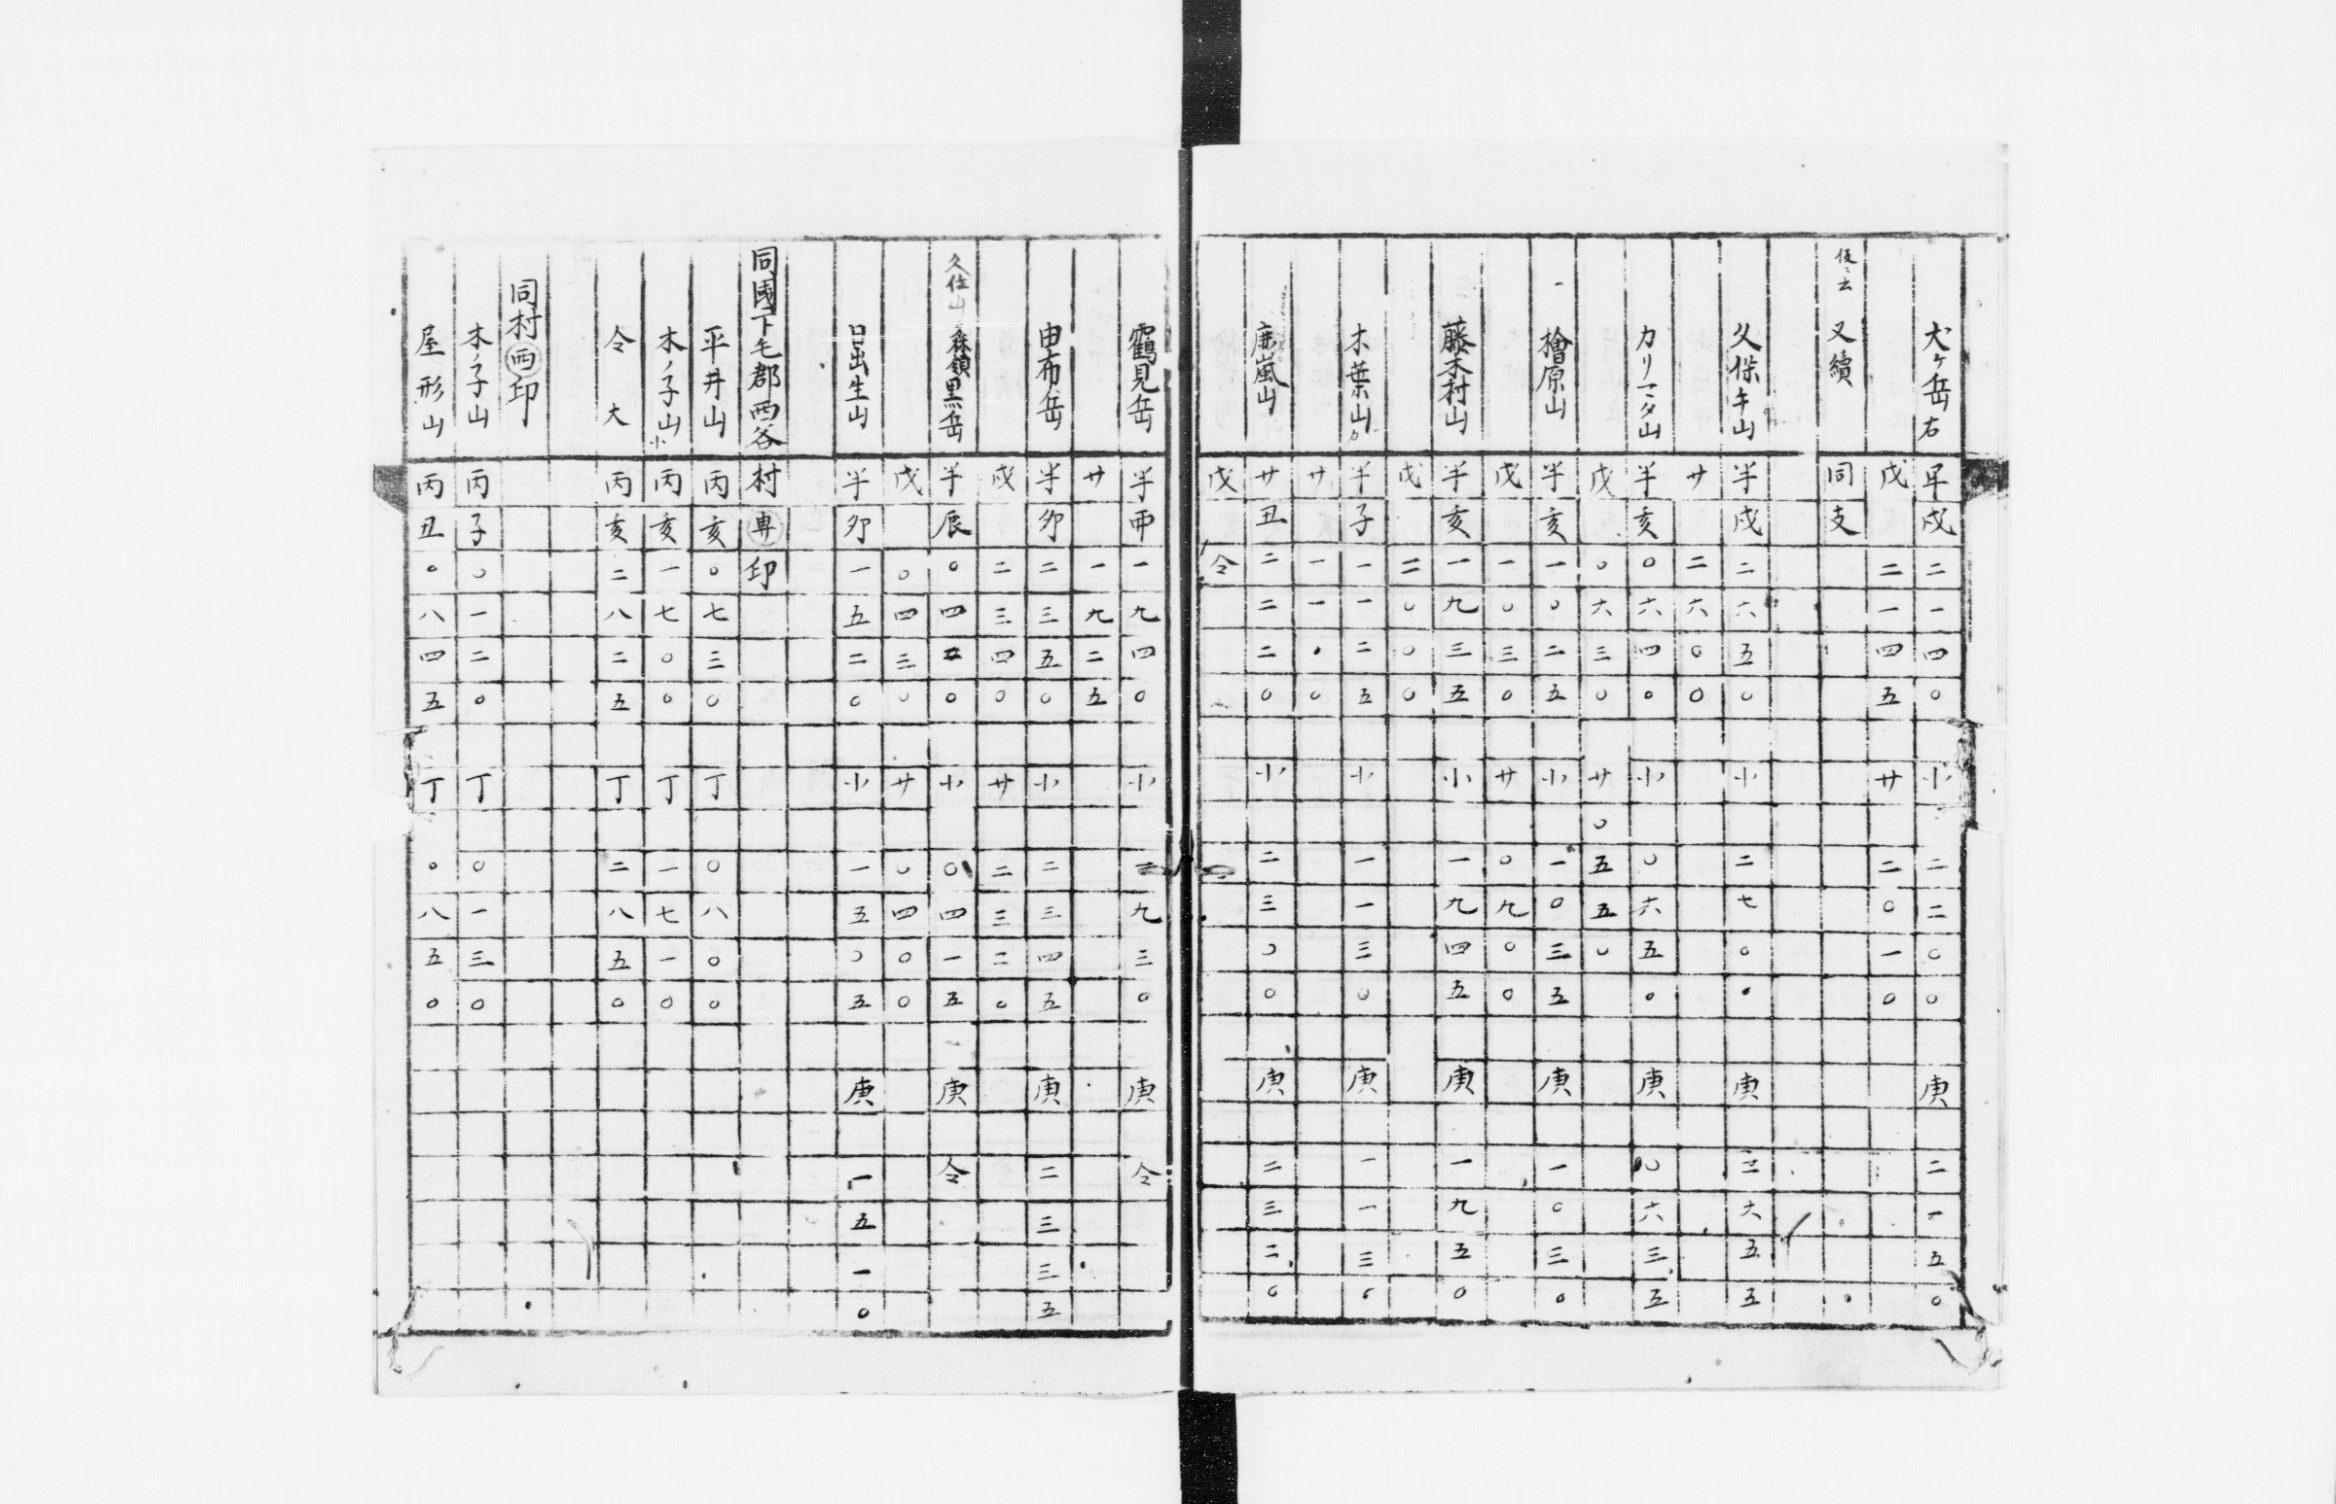 犬ヶ岳右 半戌 二一四〇 小 二二〇〇 庚 二一五〇
戊 二一四五 廿 二〇一〇
又續 同支
久保キ山 半戌 二六五〇 小 二七〇〇 庚 二六五五
廿 二六〇〇
カリマタ山 半亥 〇六四〇 小 〇六五〇 庚 〇六三五
戊 〇六三〇 廿 〇五五〇
檜原山 半亥 一〇二五 小 一〇三五 庚 一〇三〇
戊 一〇三〇 廿 〇九〇〇
藤木村山 半亥 一九三五 小 一九四五 庚 一九五〇
戊 二〇〇〇
木葉山 半子 一一二五 小 一一三〇 庚 一一三〇
廿 一一〇〇
鹿嵐山 廿丑 二二二〇 小 二三〇〇 庚 二三二〇
戊 令
鶴見岳 半 一九四〇 小 二九三〇 庚 令
廿 一九二五
由布岳 半卯 二三五〇 小 二三四五 庚 二三三五
戊 二三四〇 廿 二三二〇
久住山 森領黒岳 半辰 〇四五〇 小 〇四一五 庚 令
戊 〇四三〇 廿 〇四〇〇
日出生山 半卯 一五二〇 小 一五〇五 庚 一五一〇
同國下毛郡西谷村 専印
平井山 丙亥 〇七三〇 丁 〇八〇〇
木ノ子山小 丙亥 一七〇〇 丁 一七一〇
令 大 丙亥 二八二五 丁 二八五〇
同村 西印
木ノ子山 丙子 〇一二〇 丁 〇一三〇
屋形山 丙丑 〇八四五 丁 〇八五〇